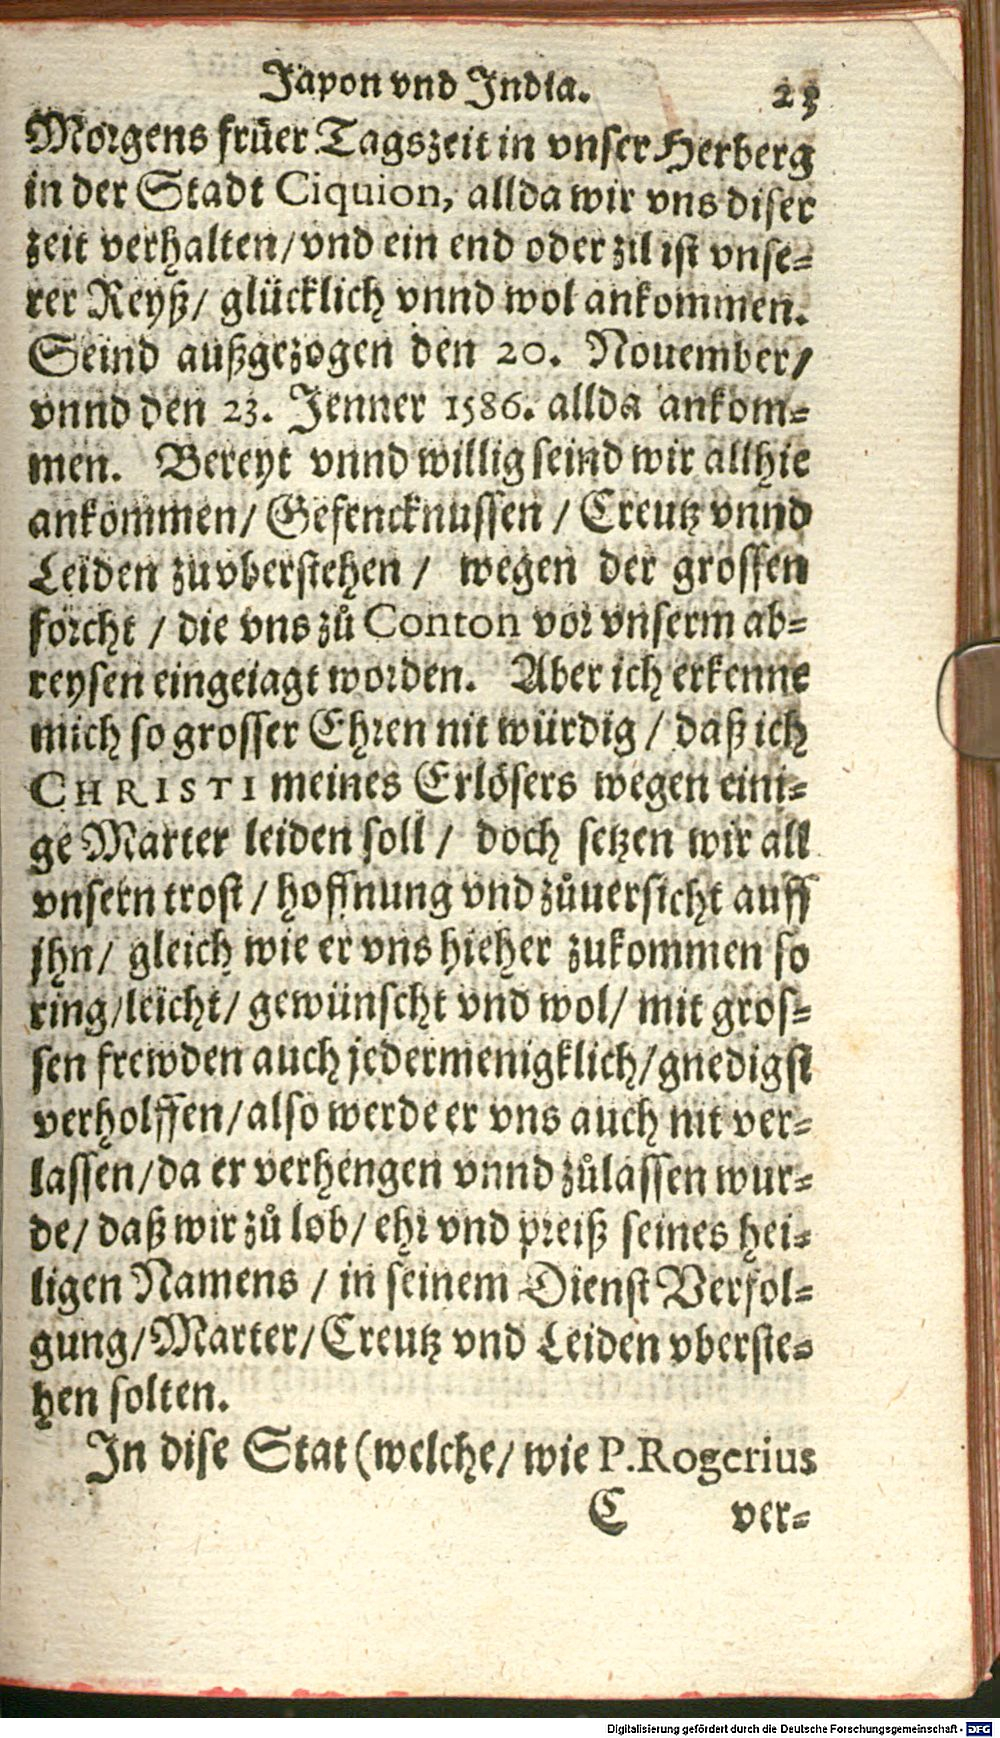 Japon vnd India. 23
Morgens früer Tagszeit in vnser Herberg
in der Stadt Ciquion, allda wir vns diser
zeit verhalten/vnd ein end oder zil ist vnse⸗
rer Reyß/ glücklich vnnd wol ankommen.
Seind außgezogen den 20. Nouember/
vnnd den 23. Jenner 1586. allda ankom⸗
men. Bereyt vnnd willig seind wir allhie
ankommen/ Gefencknussen / Creutz vnnd
Leiden zuvberstehen / wegen der grossen
forcht / die vns zů Conton vor vnserm ab⸗
reysen eingeiagt worden. Aber ich erkenne
mich so grosser Ehren nit würdig / daß ich
CHRISTI meines Erlösers wegen eini⸗
ge Marter leiden soll / doch setzen wir all
vnsern trost / hoffnung vnd zůuersicht auff
jhn/ gleich wie er vns hieher zukommen so
ring/leicht/ gewünscht vnd wol/ mit gros⸗
sen frewden auch jedermenigklich/gnedigst
verholffen/also werde er vns auch nit ver⸗
lassen/da er verhengen vnnd zůlassen wur⸗
de/ daß wir zů lob/ ehr vnd preiß seines hei⸗
ligen Namens / in seinem Dienst Verfol⸗
gung/Marter/Creutz vnd Leiden vberste⸗
hen solten.
In dise Stat (welche/ wie P.Rogerius
C ver⸗
Digitalisierung gefördert durch die Deutsche Forschungsgemeinschaft - DFG